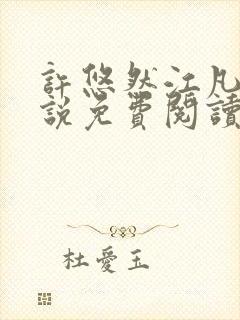 許悠然江凡
說免費閱讀
杜愛玉